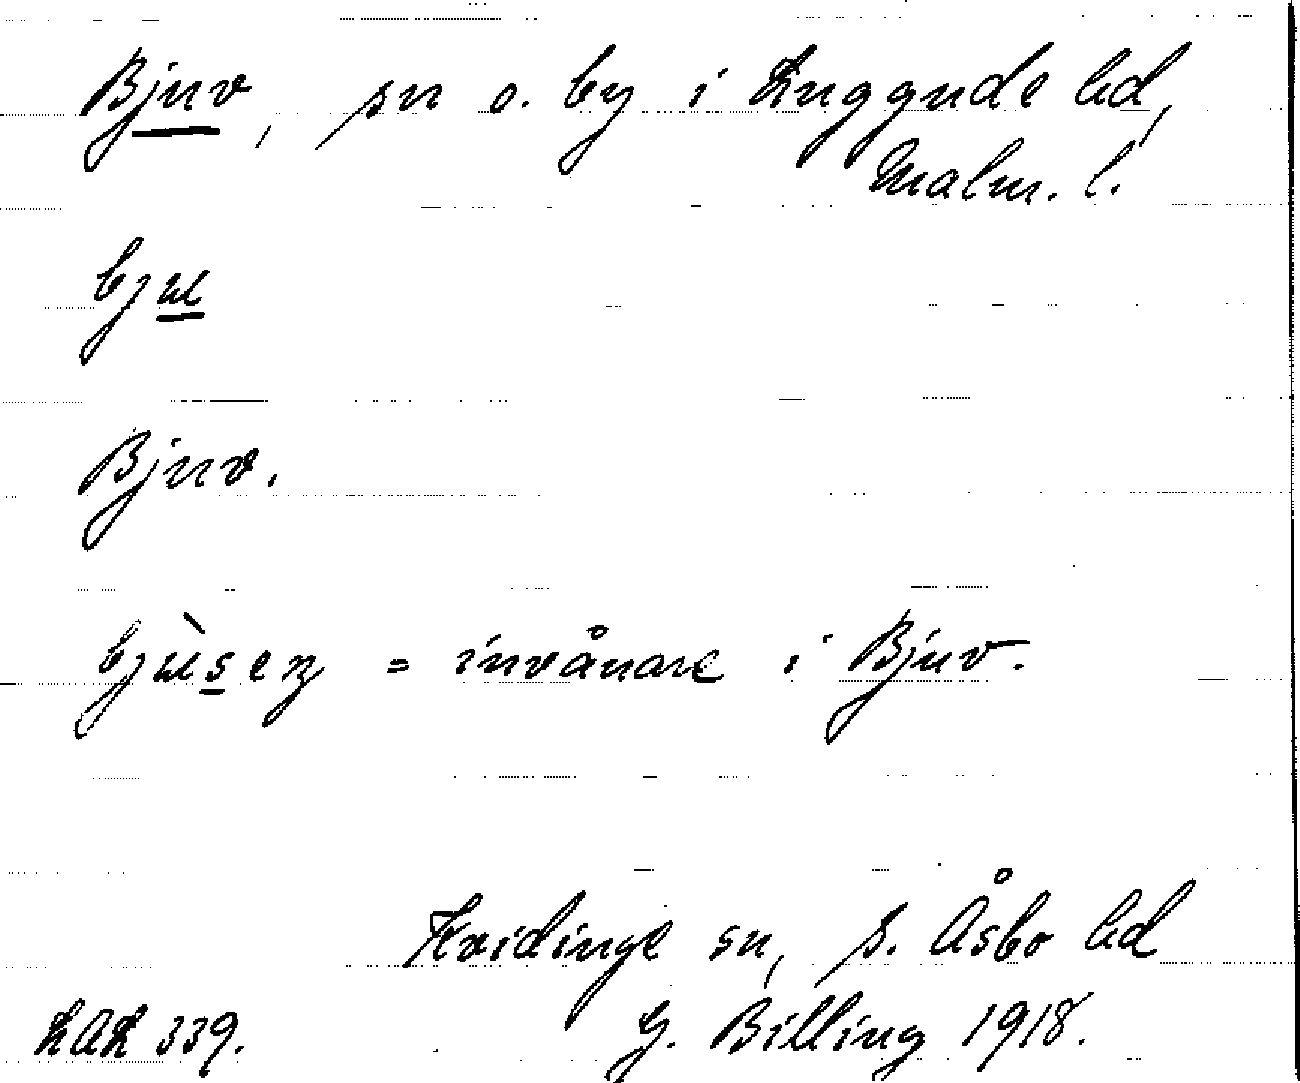 Bjuv, sn o. by i Luggude hd,
Malm. l.
bju
Bjuv.
bjùsez = invånare i Bjuv.
Kvidinge sn, S. Åsbo hd
LAL 339. G. Billing 1918.